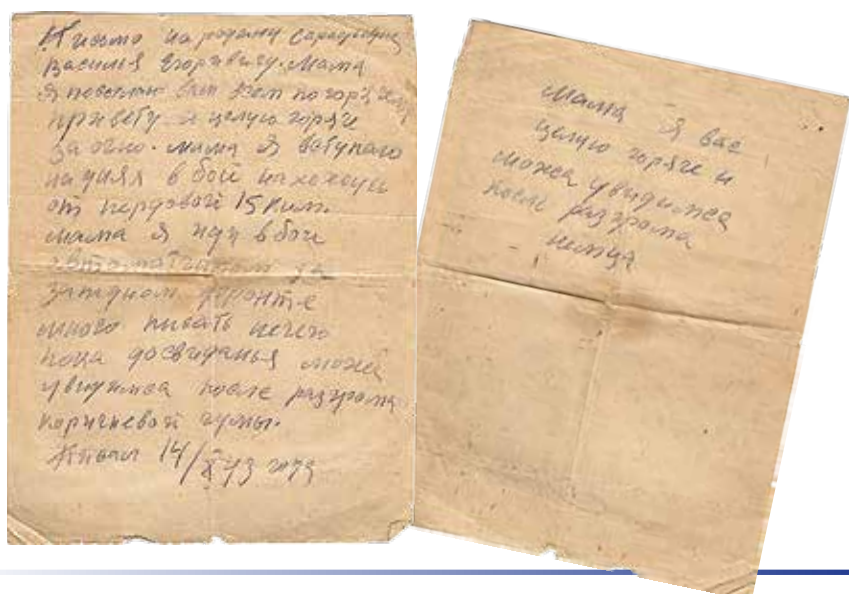 Письмо на родину
Василья Егоривичу. Мама
Я посылаю вам
привету и целую горяче
за очно. мама Я вступаю
на днях в бой нахожусь
от пердовой 15 ким.
мама Я иду в бой
автоматчиком за
западном фронте
много писать нечего
пока досвиданья можеа
увидимса после разгрома
коричневой чумы.
Писал 14/X 43 года
Мама Я вас
целую горяче и
можеа увидимса
после разгрома
немца